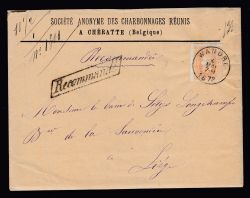 SOCIÉTÉ ANONYME DES CHARBONNAGES RÉUNIS
A CHERATTE (Belgique)
Recommandée
WANDRE
Recommandé
Monsieur le baron de Selys Longchamps
de la Sauvenière
à
Liége